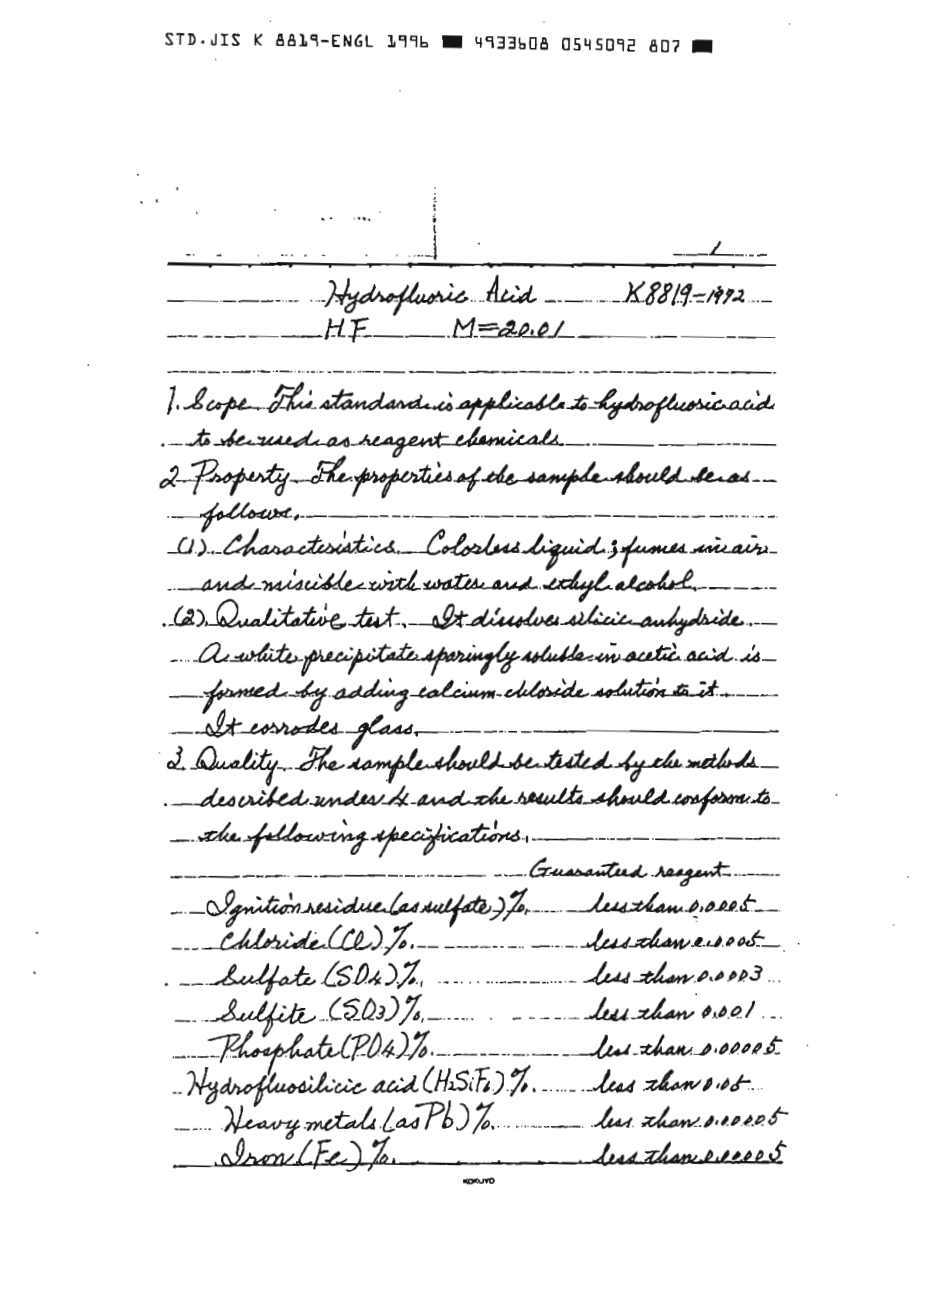 STD.JIS K 8819-ENGL 1996 ■ 4933608 0545092 807 ■
1
Hydrofluoric Acid K8819-1972
HF M=20.01
1. Scope This standard is applicable to hydrofluoric acid
to be used as reagent chemicals
2 Property The properties of the sample should be as
follows.
(1) Characteristics Colorless liquid; fumes in air
and miscible with water and ethyl alcohol
(2) Qualitative test. It dissolves silicic anhydride.
A white precipitate sparingly soluble in acetic acid is
formed by adding calcium chloride solution to it.
It corrodes glass.
3. Quality The sample should be tested by the methods
described under 4 and the results should conform to
the following specifications.
Guaranteed reagent
Ignition residue (as sulfate) %. less than 0.0005
Chloride (Cl) %. less than 0.0005
Sulfate (SO4) %. less than 0.0003
Sulfite (SO3) %. less than 0.001
Phosphate (PO4) %. less than 0.00005
Hydrofluosilicic acid (H2SiF6) %. less than 0.05
Heavy metals (as Pb) %. less than 0.00005
Iron (Fe) %. less than 0.00005
KOKUYO